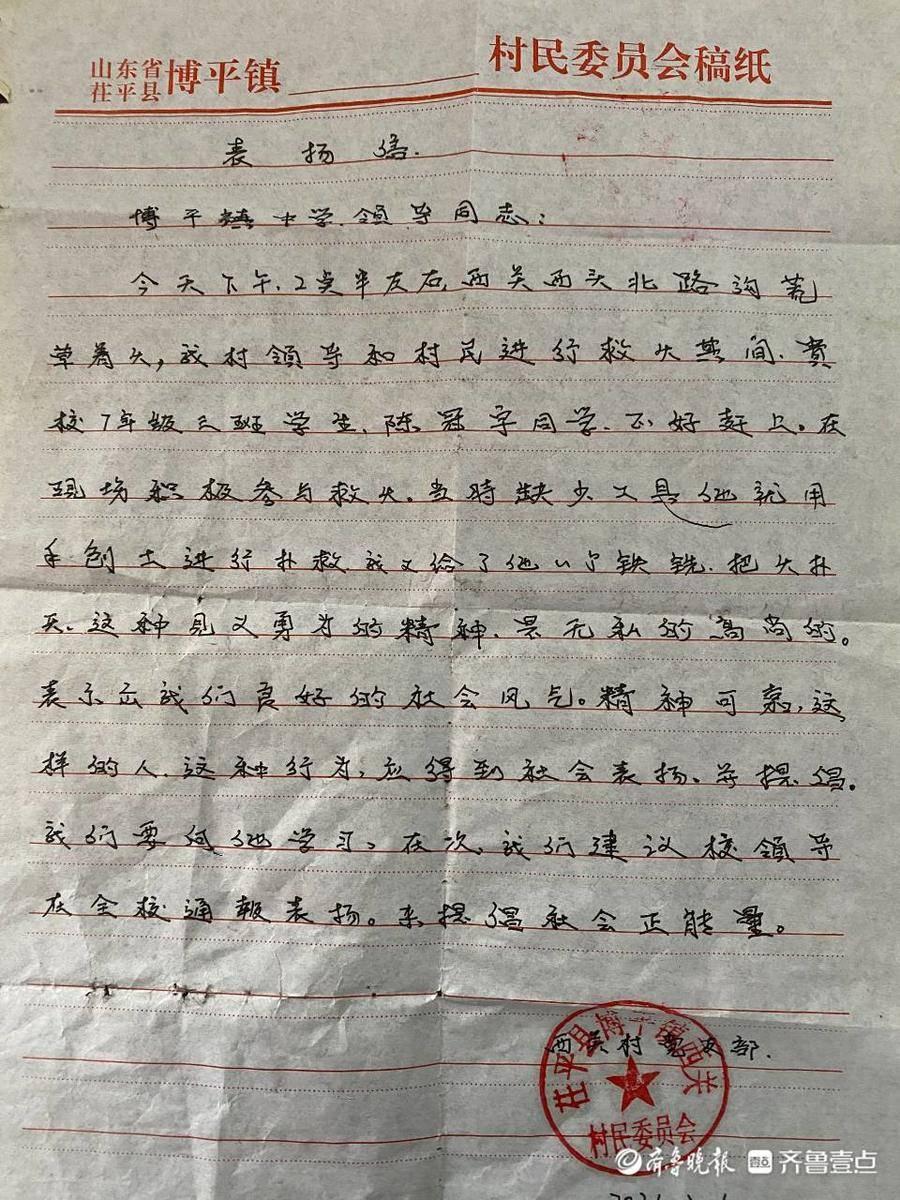 山东省
茌平县
博平镇 村民委员会稿纸
表扬信.
博平镇中学领导同志:
今天下午.2点半左右,西关西头北路沟荒
草着火,我村領导和村民进行救火其间.貴
校7年级三班学生.陈冠宇同学.正好赶上。在
现场积极参与救火。当時缺少工具他就用
手刨土进行扑救我又给了他以个铁铣.把火扑
灭。这种见义勇为的精神.是无私的高尚的。
表示立我们良好的社会风气。精神可嘉,这
样的人.这种行为,应得到社会表扬.并提倡。
我们要向他学习。在次,我们建议校領导
在全校通報表扬。来提倡社会正能量。
西关村党支部.
茌平县博平镇西关
村民委员会
齐鲁晚报 齐鲁壹点